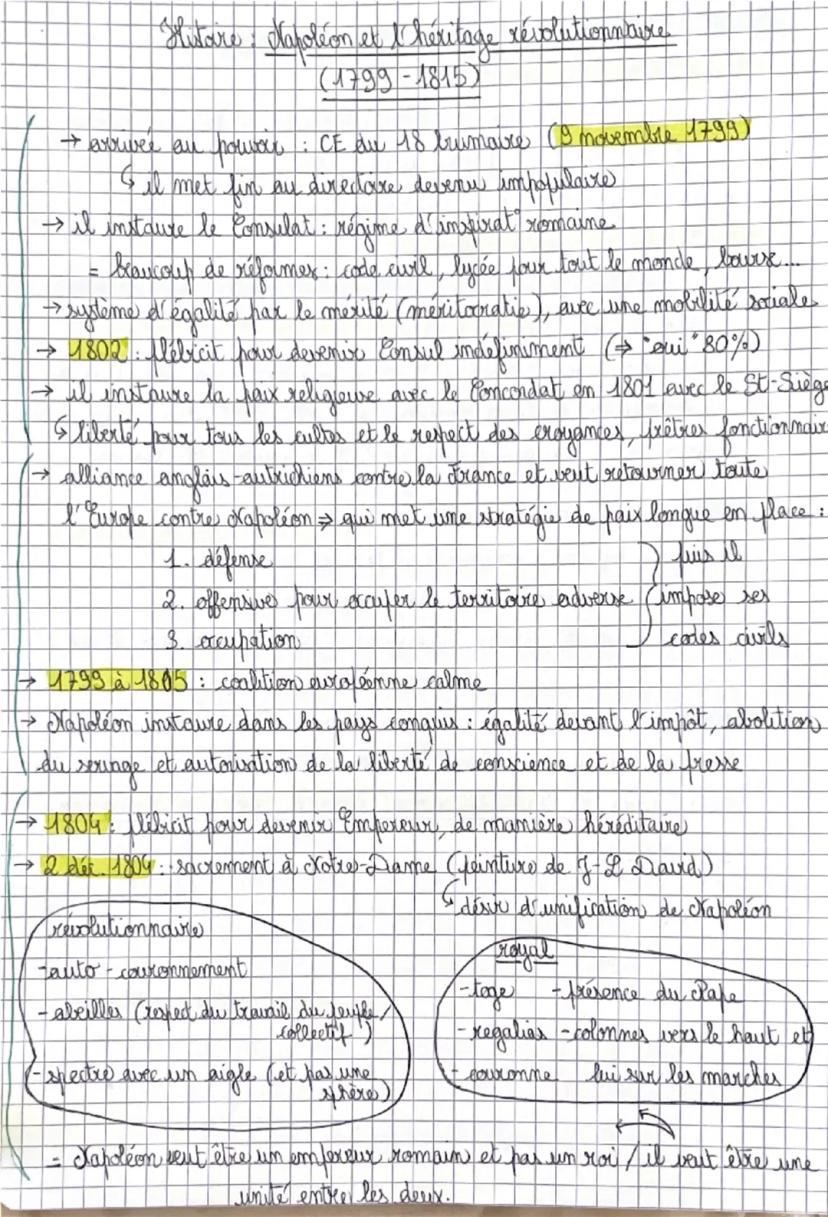 Histoire : Napoléon et l'héritage révolutionnaire
(1799-1815)
→ arrivée au pouvoir : CE du 18 brumaire (9 novembre 1799)
↳ il met fin au directoire devenu impopulaire
→ il instaure le Consulat : régime d'inspirat° romaine
= beaucoup de réformes : code civil, lycée pour tout le monde, bourse...
→ système d'égalité par le mérité (méritocratie), avec une mobilité sociale
→ 1802 : plébicit pour devenir Consul indéfiniment (⇒ "oui" 80%)
→ il instaure la paix religieuse avec le Concordat en 1801 avec le St-Siège
↳ liberté pour tous les cultes et le respect des croyances, prêtres fonctionnair
→ alliance anglais-autrichiens contre la France et veut retourner toute
l'Europe contre Napoléon ⇒ qui met une stratégie de paix longue en place :
1. défense
2. offensive pour occuper le territoire adverse
3. occupation
puis il
impose ses
codes civils
→ 1799 à 1805 : coalition européenne calme
→ Napoléon instaure dans les pays conquis : égalité devant l'impôt, abolition
du servage et autorisation de la liberté de conscience et de la presse
→ 1804 : plébicit pour devenir Empereur, de manière héréditaire
→ 2 déc. 1804 : sacrement à Notre-Dame (peinture de J-L David)
↳ désir d'unification de Napoléon
révolutionnaire
-auto-couronnement
-abeilles (respect du travail du peuple/
collectif)
-spectre avec un aigle (et pas une
sphère)
royal
-toge -présence du Pape
-regalias -colonnes vers le haut et
-couronne lui sur les marches
= Napoléon veut être un empereur romain et pas un roi / il veut être une
unité entre les deux.